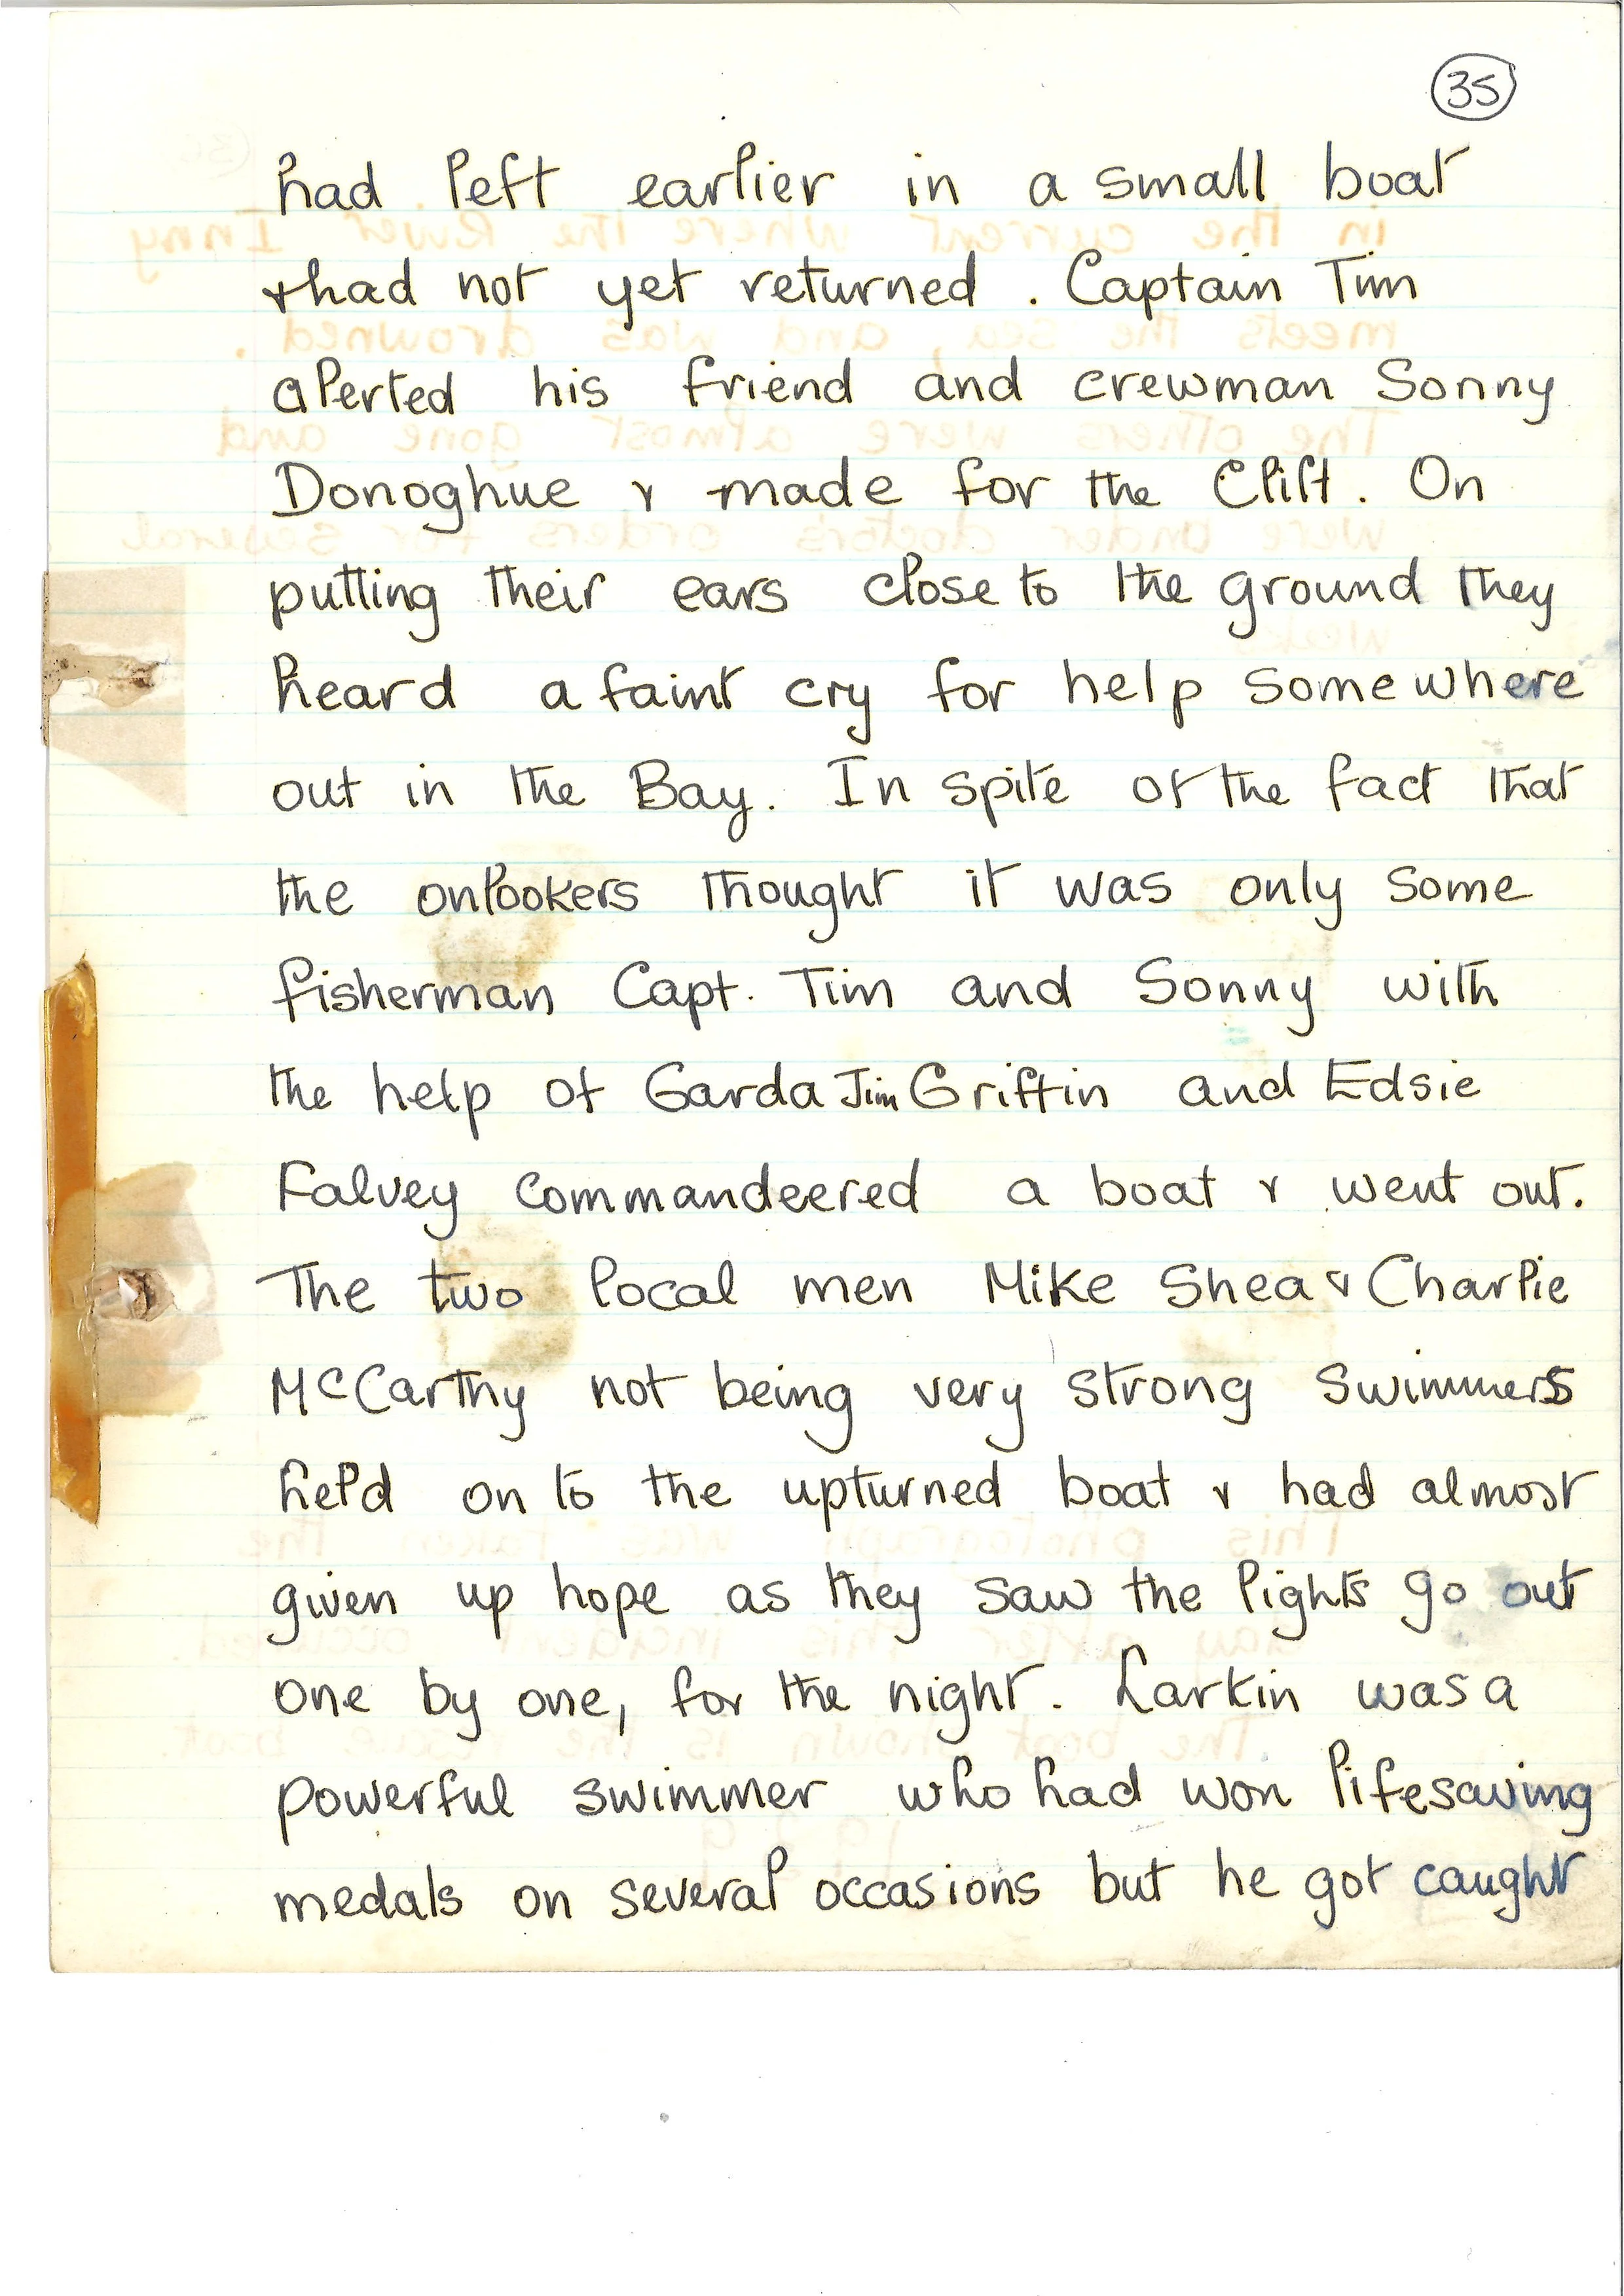 35
had left earlier in a small boat
& had not yet returned. Captain Tim
alerted his friend and crewman Sonny
Donoghue & made for the Cliff. On
putting their ears close to the ground they
heard a faint cry for help somewhere
out in the Bay. In spite of the fact that
the onlookers thought it was only some
fisherman Capt. Tim and Sonny with
the help of Garda Jim Griffin and Edsie
Falvey commandeered a boat & went out.
The two local men Mike Shea & Charlie
McCarthy not being very strong swimmers
held on to the upturned boat & had almost
given up hope as they saw the lights go out
one by one, for the night. Larkin was a
powerful swimmer who had won lifesaving
medals on several occasions but he got caught